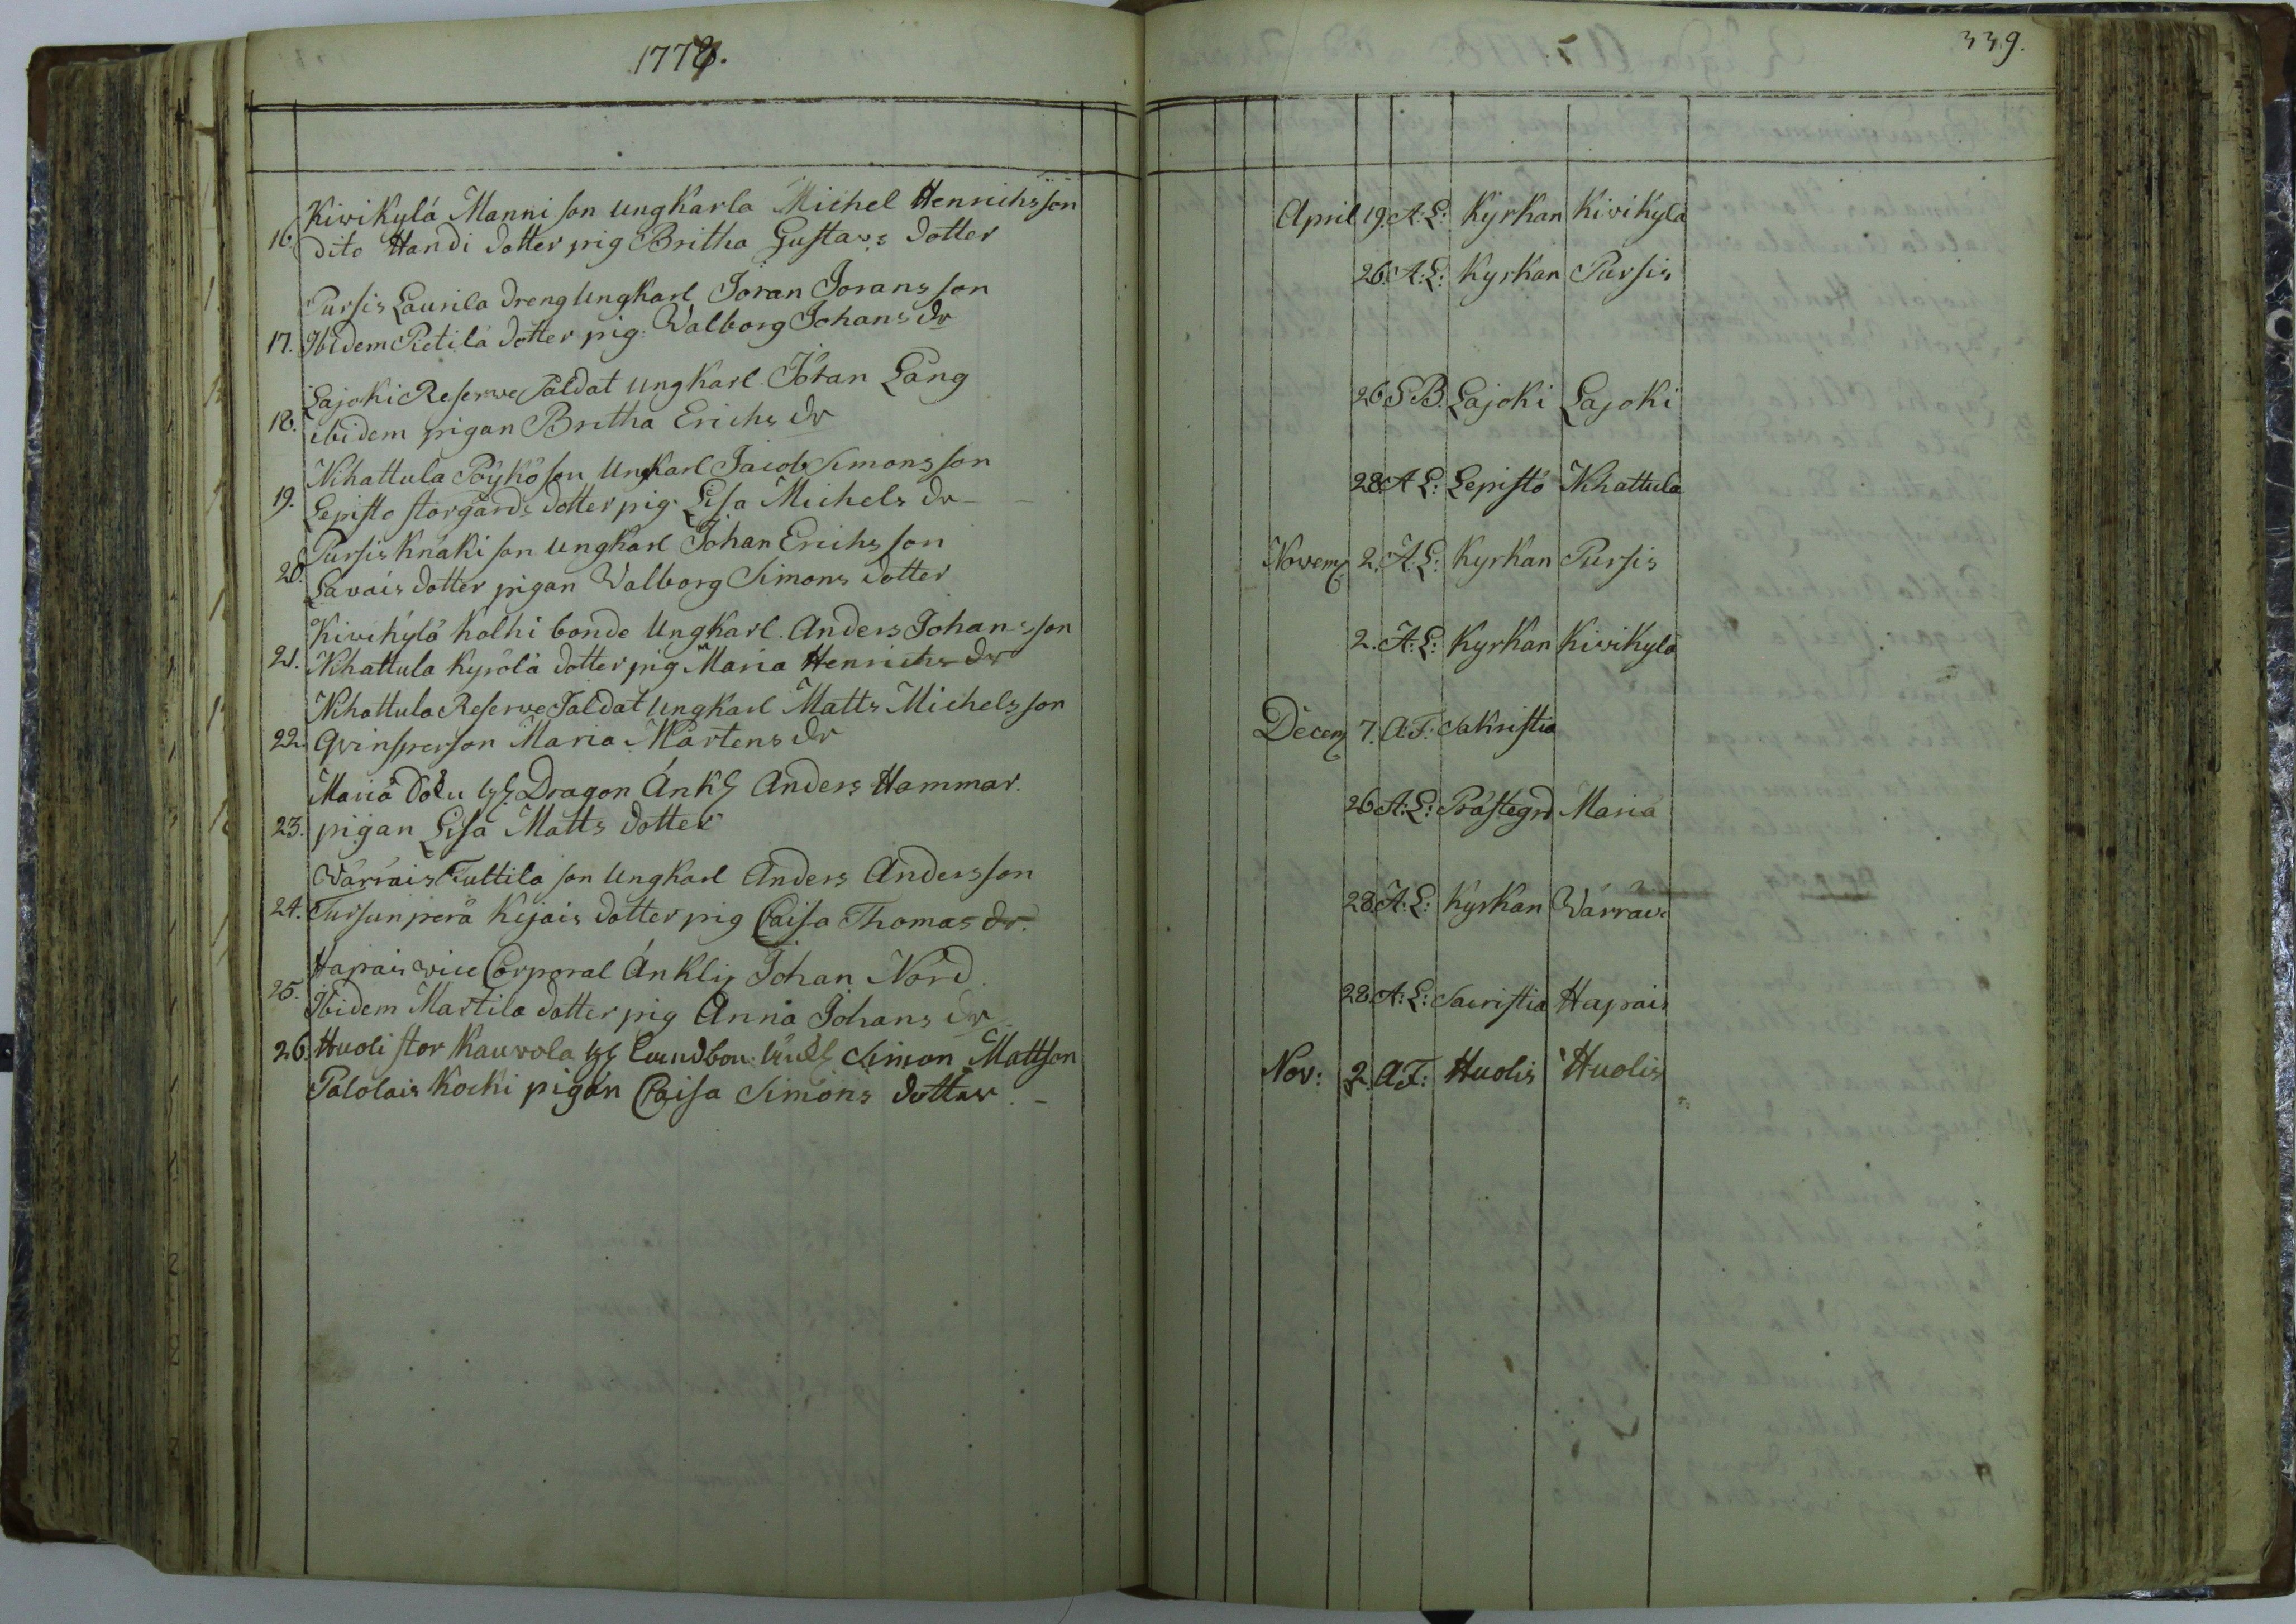 1778.
Kivikylä Manni son ungkarla Michel Henrichsson
16. dito Handi dotter pig Britha Gustavs dotter
Pursis Laurila dreng Ungkarl Jöran Jörans son
17. Ibidem Pietilä dotter pig. Walborg Johans dr
Lajoki Reserve Saldat ungkarl Jöran Lång
18. ibidem pigan Britha Erichs dr
Nihattula Pöykö son Ungkarl Jacob Simons son
19. Lepistö storgårds dotter pig. Lisa Michels dr
Pursis Knaki son ungkarl Johan Erichs son
20. Lavais dotter pigan Walborg Simons dotter
Kivikylä Kolhi bonde Ungkarl. Anders Johans son
21. Nihattula Kyrölä dotter pig Maria Henrichs dr
Nihattula Reserve Saldat Ungkarl Matts Michels son
22. Qvinsperson Maria Mårtens dr
Maria Dragon Änkl Anders Hammar.
23. pigan Lisa Matts dotter
Wärräis Tuttila son Ungkarl Anders Andersson
24. Tursunperä Kejais dotter pig Caisa Thomas dr.
Hapais vice Corporal Änkling Johan Nord
25. Ibidem Martila dotter pig Anna Johans dr
26. Huoli stor Kauvola Simon Mattson
Palolais Kocki pigan Caisa Simons dotter. -
339.
April 19. A: L: Kyrkan Kivikylä
26. A: L: Kyrkan Pursis
26 S B. Lajoki Lajoki
28. A L: Lepistö Nihattula
Novem 2. A: L: Kyrkan Pursis
2. A: L: Kyrkan Kivikylä
Decem 7. A: F: Sakristia
26 A: L: Prästegrd Maria
28. A: L: Kyrkan Wärräis
28. A: L: Sacristia Hapais
Nov: 2. A F: Huolis Huolis